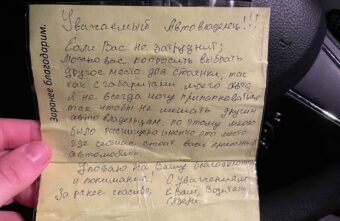 Заранее благодарим.
Уважаемый Автовладелец!!!
Если Вас не затруднит;
Можно вас попросить выбрать
другое место для стоянки, так
как с габаритами моего авто
я не всегда могу припарковаться
так чтобы не мешать другим
авто владельцам. по этому мною
было расчищено именно это место
где сейчас стоит ваш
автомобиль.
Уповаю на Вашу
и понимание! С уважением
За ранее спасибо, к Вам,